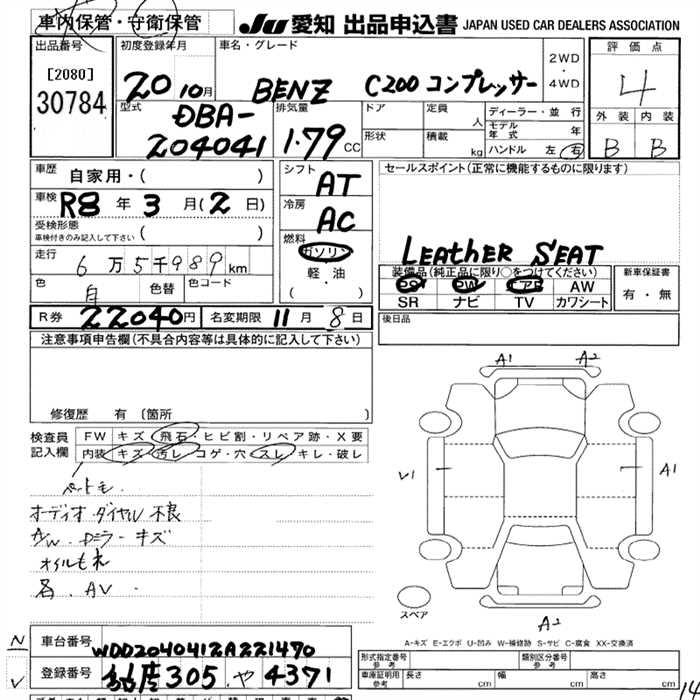 車内保管・守衛保管
JU 愛知 出品申込書 JAPAN USED CAR DEALERS ASSOCIATION
出品番号
[2080]
30784
初度登録年月
20 10月
車名・グレード
BENZ C200 コンプレッサー
2WD
・
4WD
評価点
4
外装 内装
B B
型式
DBA-
204041
排気量
1.79 CC
ドア
定員
人
形状
積載
kg
ディーラー・並行
モデル年式 年
ハンドル 左 右
車歴
自家用・( )
車検
R8 年 3 月 ( 2 日)
受検形態
車検付きのみ記入して下さい ( )
走行
6 万 5 千 989 km
色
色替
色コード
シフト
AT
冷房
AC
燃料
ガソリン
軽・油
( )
セールスポイント(正常に機能するものに限ります)
LEATHER SEAT
装備品(純正品に限り○をつけてください)
PS PW エアB AW
SR ナビ TV カワシート
新車保証書
有・無
R券 22040円 名変期限 11月 8日
後日品
注意事項申告欄(不具合内容等は具体的に記入して下さい)
修復歴 有 〔箇所 〕
検査員
記入欄
FW キズ・飛石・ヒビ割・リペア跡・X要
内装 キズ・汚レ・コゲ・穴・スレ・キレ・破レ
ペットモ
オーディオダイヤル不良
A/W ドミラーキズ
オイルモレ
各、AV
A1 A2
V1
A1
A2
スペア
A-キズ E-エクボ U-凹み W-補修跡 S-サビ C-腐食 XX-交換済
N
V
車台番号 WDD2040412A221470
登録番号 305 や 4371
形式指定番号
参考
類別区分番号
参考
車庫証明用
参考
長さ cm 幅 cm 高さ cm